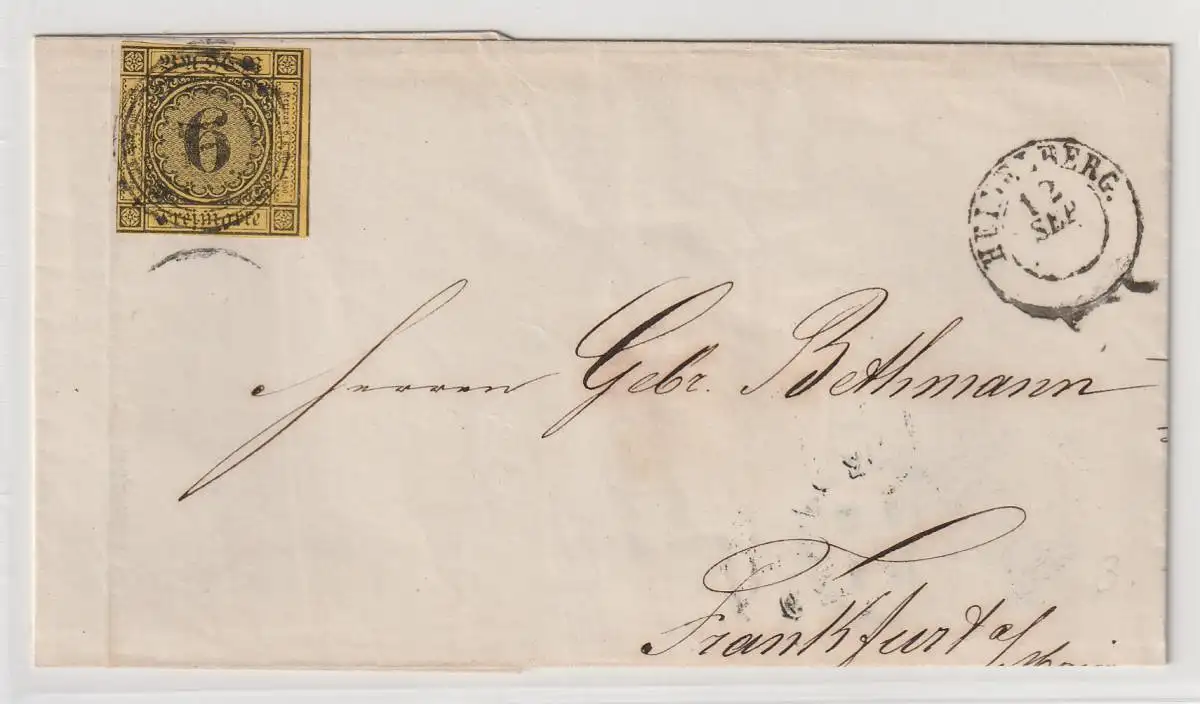 6
Freimarke
HEIDELBERG.
12
SEP
Herren Gebr. Bethmann
Frankfurt a/